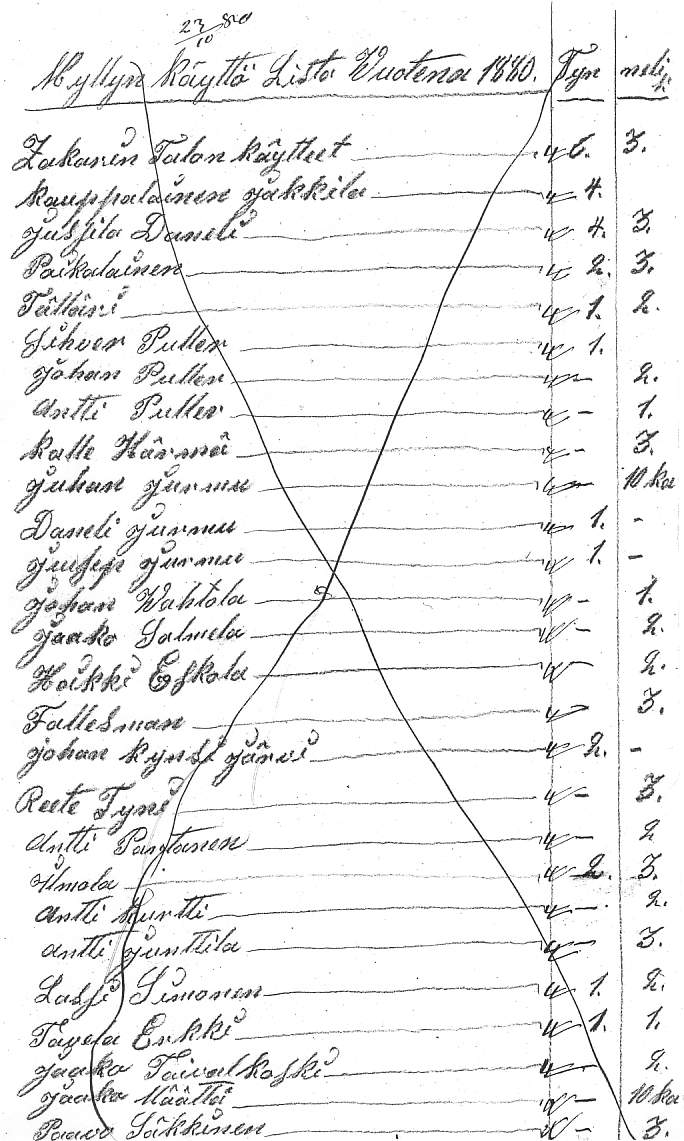 23/10 80
Myllyn Käyttö Lista Vuotena 1880. Tyn neli
Zakarin Talon käytteet 6. 3.
kauppalainen jakkila 4.
jussila Daneli 4. 3.
Paikalainen 2. 3.
1. 2.
Sihver Puller 1.
johan Puller - 2.
Antti Puller - 1.
kalle Härmä - 3.
juhan jurmu - 10 ka
Daneli jurmu 1. -
jusep jurmu 1. -
johan Wahtola - 1.
jaako Salmela - 2.
Heikki Eskola - 2.
Fallesman - 3.
johan kynsi järvi 2. -
Reete Tyni - 3.
Antti - 2
Ilmola 2. 3.
antti kurtti - 2.
antti junttila - 3.
Lassi Simonen 1. 2.
Tavela Erkki 1. 1.
jaako Taivalkoski - 2.
jaako Määttä - 10 ka
Paavo Säkkinen - 3.